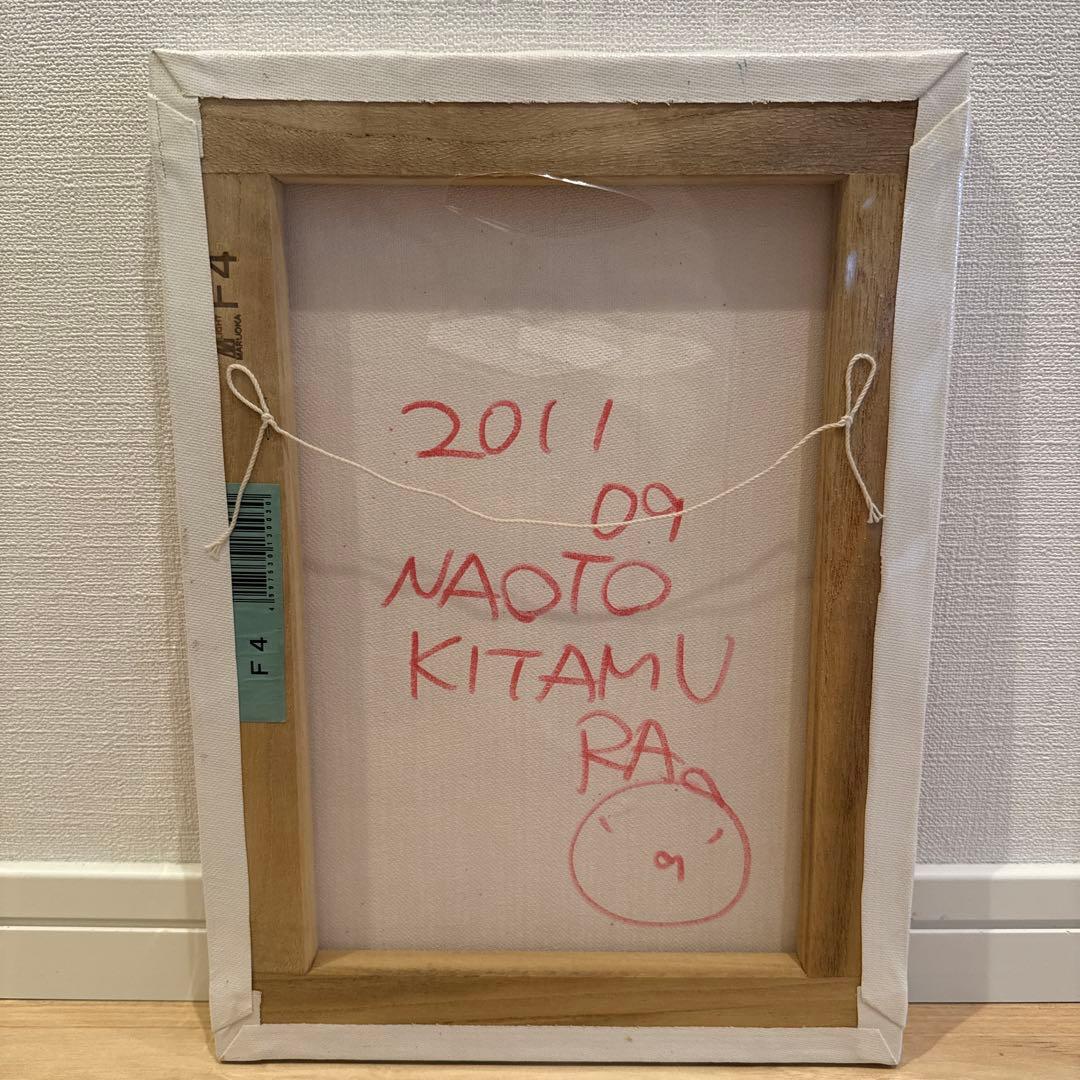 F4
LIGHT
MARUOKA
4997530130030
F4
2011
09
NAOTO
KITAMU
RA